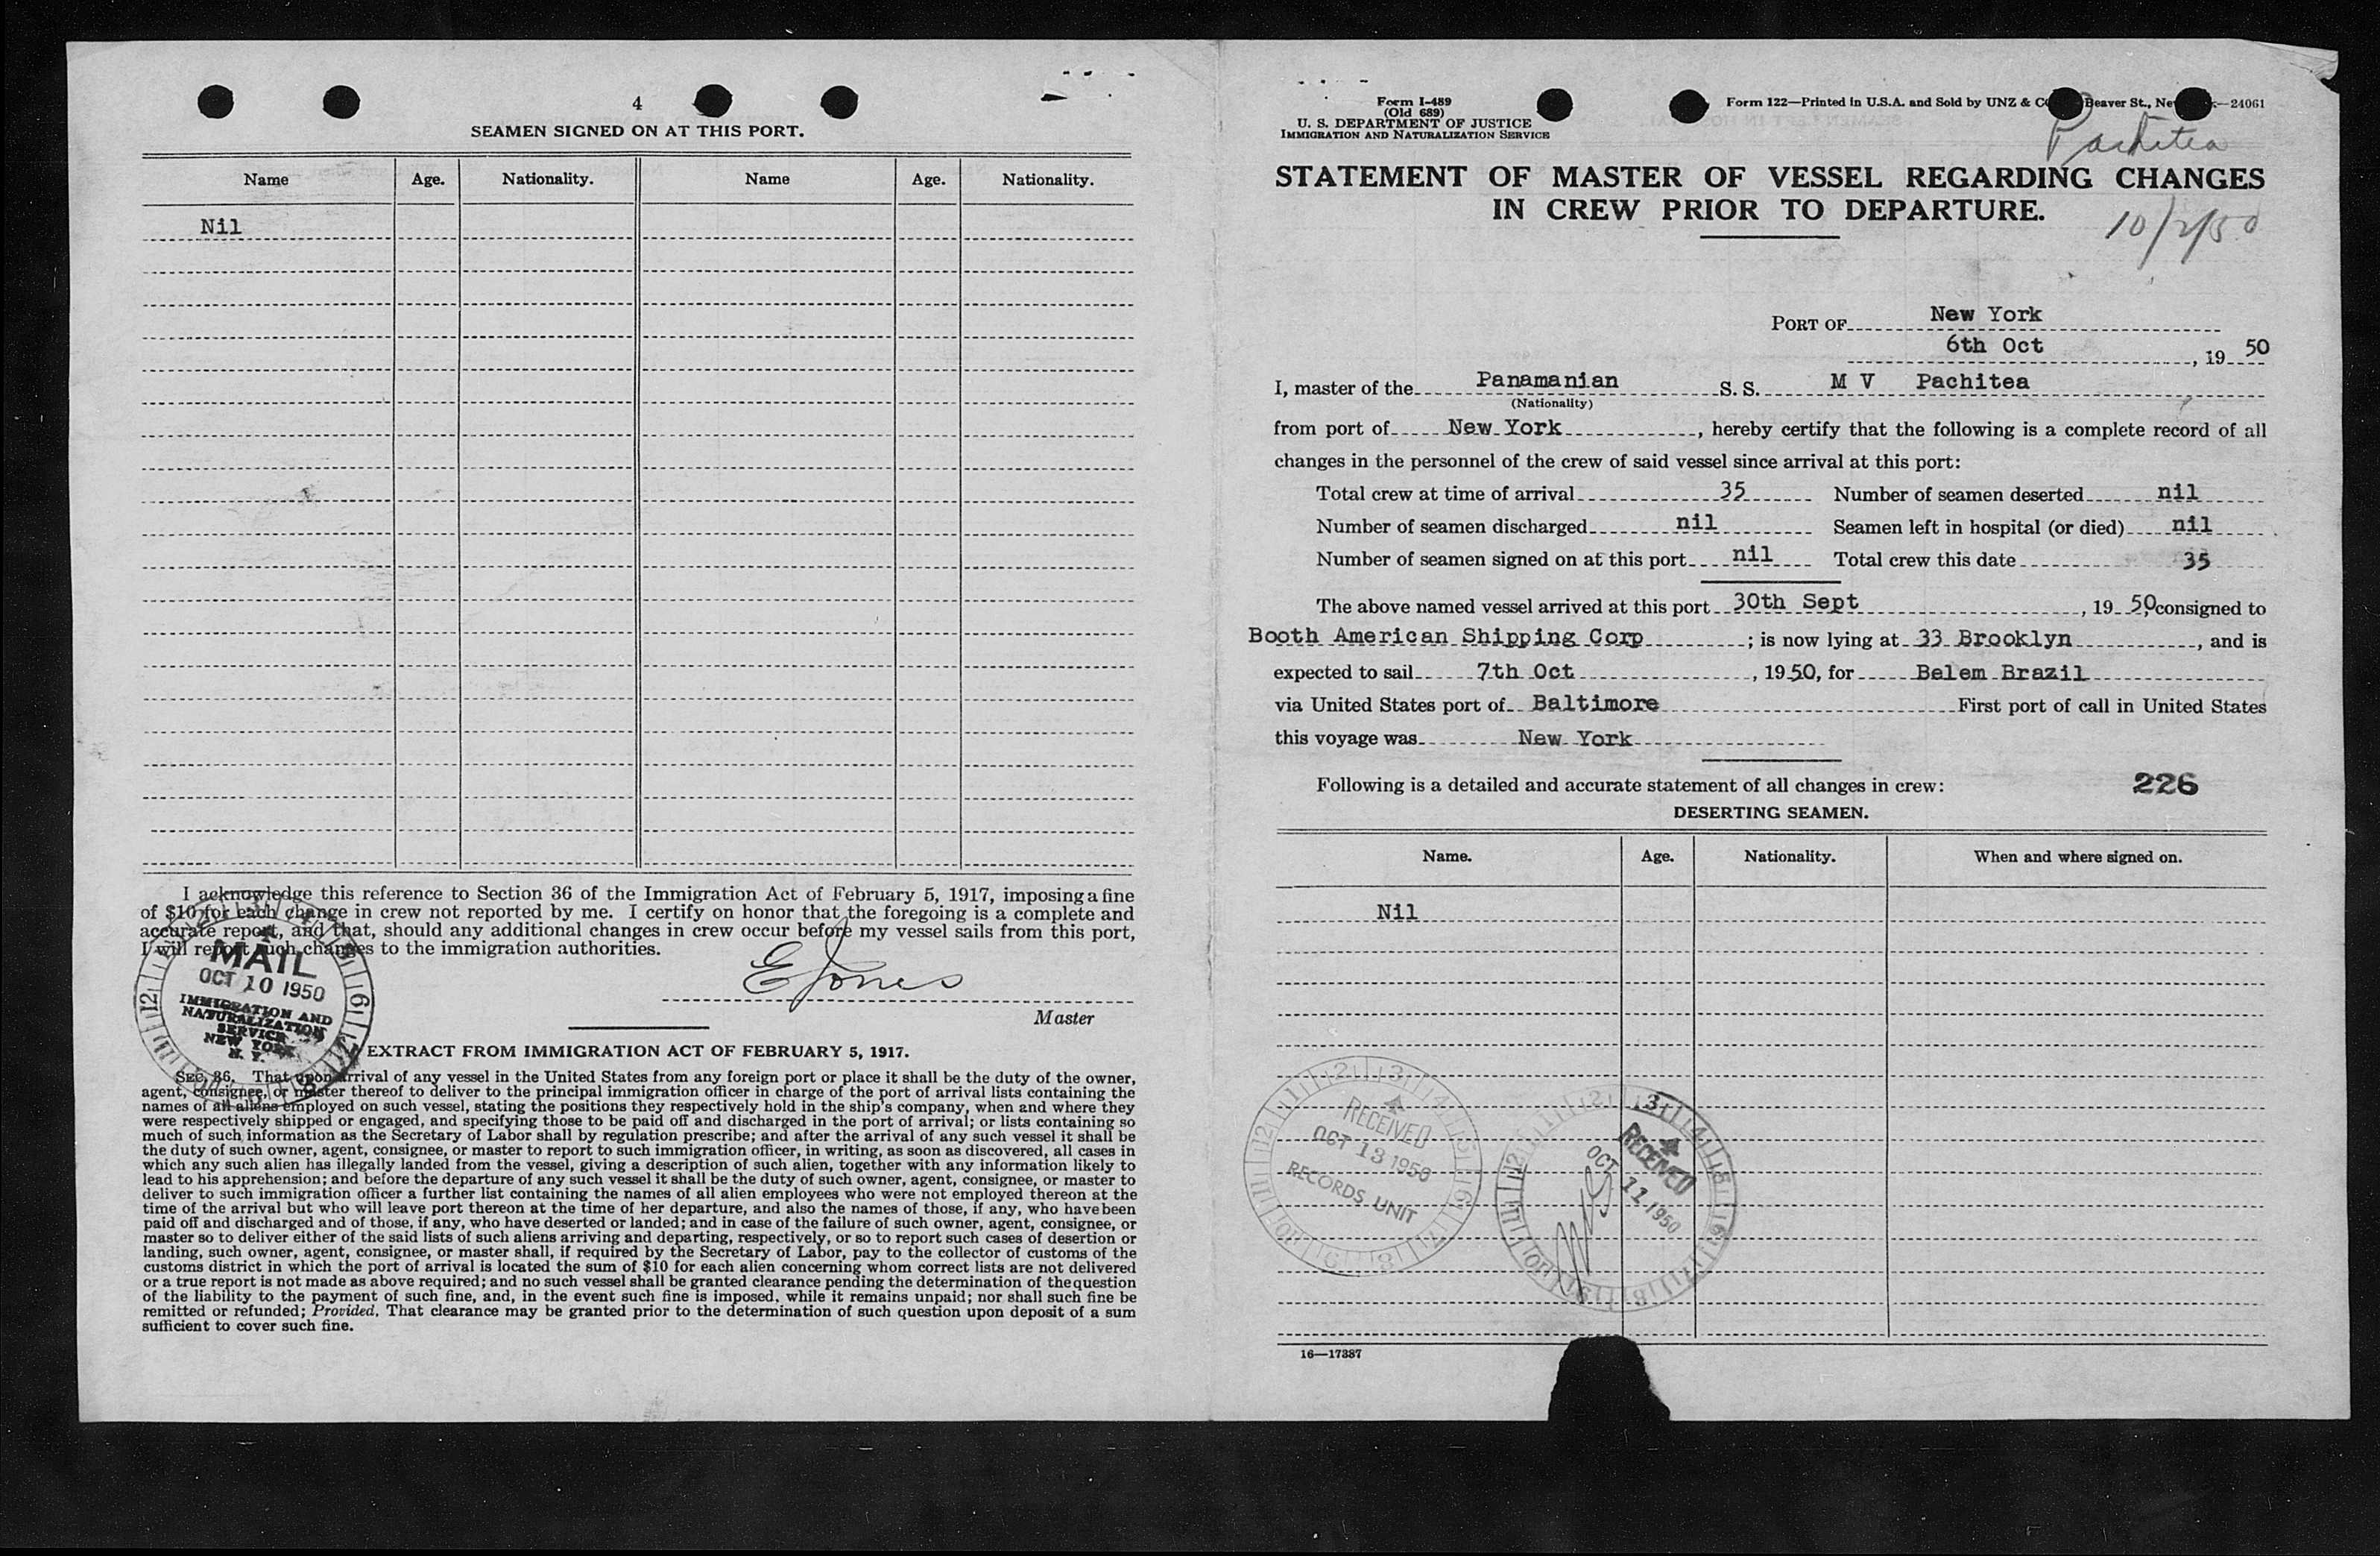 4
SEAMEN SIGNED ON AT THIS PORT.
Name Age. Nationality. Name Age. Nationality.
Nil
I acknowledge this reference to Section 36 of the Immigration Act of February 5, 1917, imposing a fine
of $10 for each change in crew not reported by me. I certify on honor that the foregoing is a complete and
accurate report, and that, should any additional changes in crew occur before my vessel sails from this port,
I will report such changes to the immigration authorities.
MAIL
OCT 10 1950
IMMIGRATION AND
NATURALIZATION
SERVICE
NEW YORK
N. Y.
E Jones
Master
EXTRACT FROM IMMIGRATION ACT OF FEBRUARY 5, 1917.
SEC. 36. That upon arrival of any vessel in the United States from any foreign port or place it shall be the duty of the owner,
agent, consignee, or master thereof to deliver to the principal immigration officer in charge of the port of arrival lists containing the
names of all aliens employed on such vessel, stating the positions they respectively hold in the ship's company, when and where they
were respectively shipped or engaged, and specifying those to be paid off and discharged in the port of arrival; or lists containing so
much of such information as the Secretary of Labor shall by regulation prescribe; and after the arrival of any such vessel it shall be
the duty of such owner, agent, consignee, or master to report to such immigration officer, in writing, as soon as discovered, all cases in
which any such alien has illegally landed from the vessel, giving a description of such alien, together with any information likely to
lead to his apprehension; and before the departure of any such vessel it shall be the duty of such owner, agent, consignee, or master to
deliver to such immigration officer a further list containing the names of all alien employees who were not employed thereon at the
time of the arrival but who will leave port thereon at the time of her departure, and also the names of those, if any, who have been
paid off and discharged and of those, if any, who have deserted or landed; and in case of the failure of such owner, agent, consignee, or
master so to deliver either of the said lists of such aliens arriving and departing, respectively, or so to report such cases of desertion or
landing, such owner, agent, consignee, or master shall, if required by the Secretary of Labor, pay to the collector of customs of the
customs district in which the port of arrival is located the sum of $10 for each alien concerning whom correct lists are not delivered
or a true report is not made as above required; and no such vessel shall be granted clearance pending the determination of the question
of the liability to the payment of such fine, and, in the event such fine is imposed, while it remains unpaid; nor shall such fine be
remitted or refunded; Provided, That clearance may be granted prior to the determination of such question upon deposit of a sum
sufficient to cover such fine.
Form I-489
(Old 689)
U. S. DEPARTMENT OF JUSTICE
IMMIGRATION AND NATURALIZATION SERVICE
Form 122—Printed in U.S.A. and Sold by UNZ & Beaver St., —24061
Pachitea
STATEMENT OF MASTER OF VESSEL REGARDING CHANGES
IN CREW PRIOR TO DEPARTURE.
10/2/50
PORT OF New York
6th Oct, 19 50
I, master of the Panamanian S. S. M V Pachitea
(Nationality)
from port of New York, hereby certify that the following is a complete record of all
changes in the personnel of the crew of said vessel since arrival at this port:
Total crew at time of arrival 35 Number of seamen deserted nil
Number of seamen discharged nil Seamen left in hospital (or died) nil
Number of seamen signed on at this port nil Total crew this date 35
The above named vessel arrived at this port 30th Sept, 19 50, consigned to
Booth American Shipping Corp; is now lying at 33 Brooklyn, and is
expected to sail 7th Oct, 1950, for Belem Brazil
via United States port of Baltimore First port of call in United States
this voyage was New York
Following is a detailed and accurate statement of all changes in crew: 226
DESERTING SEAMEN.
Name. Age. Nationality. When and where signed on.
Nil
RECEIVED
OCT 13 1950
RECORDS UNIT
RECEIVED
OCT 11 1950
16—17387